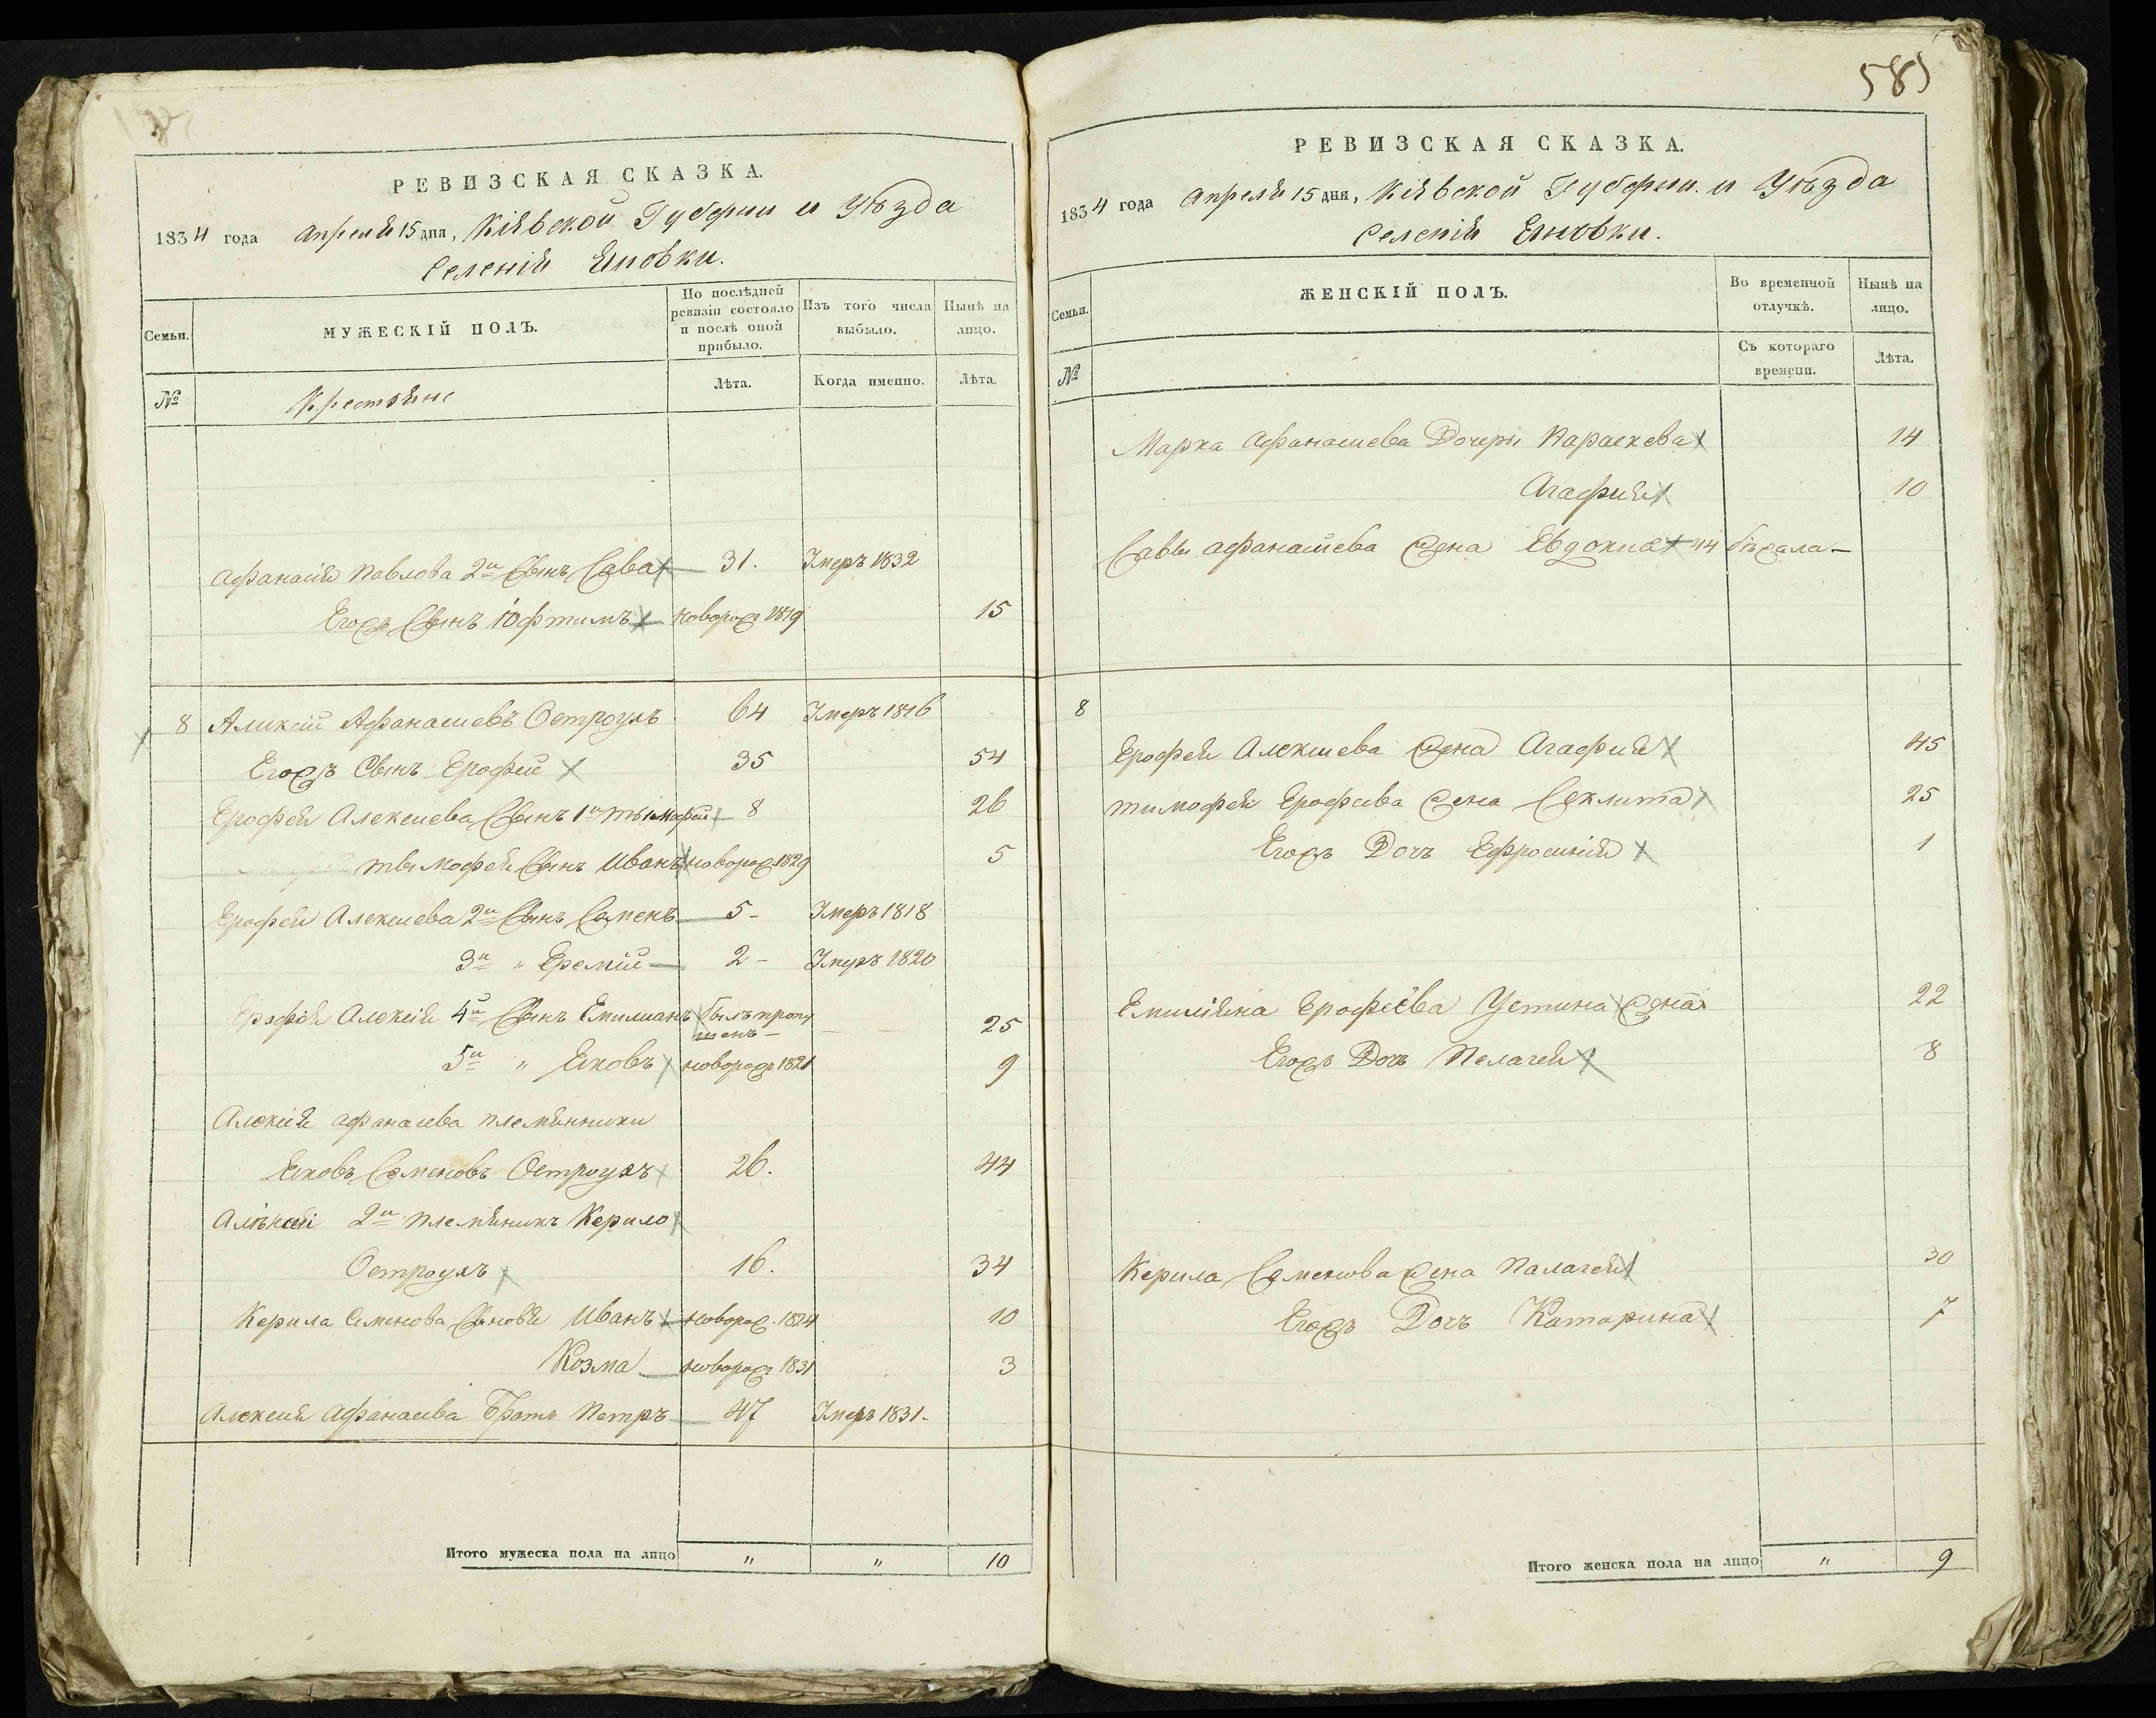 РЕВИЗСКАЯ СКАЗКА.
1834 года Апреля 15 дня, Кіевской Губерніи и Уѣзда
Селенія Яновки.
Семьи.
МУЖЕСКІЙ ПОЛЪ.
По послѣдней ревизіи состояло и послѣ оной прибыло.
Изъ того числа выбыло.
Нынѣ на лицо.
№
Крестьяне
Лѣта.
Когда именно.
Лѣта.
Афанасія Павлова 2й Сынъ Сава 31. Умеръ 1832
Егожъ Сынъ Юфтимъ новорож 1819 15
8 Аликсій Афанасиевъ Остроухъ 64 Умеръ 1816
Егожъ Сынъ Ерофей 35 54
Ерофея Алексиева Сынъ 1й тымофей 8 26
тымофея Сынъ Иванъ новорож. 1829 5
Ерофея Алексиева 2й Сынъ Саменъ 5 - Умеръ 1818
3й " Еремій 2 - Умеръ 1820
Ерофея Алексія 4й Сынъ Емилианъ былъ пропу
щенъ - 25
5й " Яковъ новорож 1821 9
Алексія Афанасева племянники
Яковъ Саменовъ Остроухъ 26. 44
Алѣксія 2й племянникъ Керило
Остроухъ 16. 34
Керила Семенова Сыновя Иванъ новорож. 1824 10
Козма новорож 1831 3
Алексия Афанасива Братъ Петръ 47 Умеръ 1831.
Итого мужеска пола на лицо " " 10
585
РЕВИЗСКАЯ СКАЗКА.
1834 года Апреля 15 дня, Кіевской Губерніи и Уѣзда
Селенія Яновки.
Семьи.
ЖЕНСКІЙ ПОЛЪ.
Во временной отлучкѣ.
Нынѣ на лицо.
№
Съ котораго времени.
Лѣта.
Марка Афанасиева Дочери Параскева 14
Агафия 10
Савы Афанасиева жена Евдокиа 44 бѣжала -
8
Ерофея Алексиева жена Агафия 45
тимофея Ерофеева жена Секлита 25
Егожъ Дочъ Ефросинія 1
Емиліяна Ерофеева Устина жена 22
Егожъ Дочъ Пелагея 8
Керила Саменова жена Палагея 30
Егожъ Дочъ Катарина 7
Итого женска пола на лицо " 9